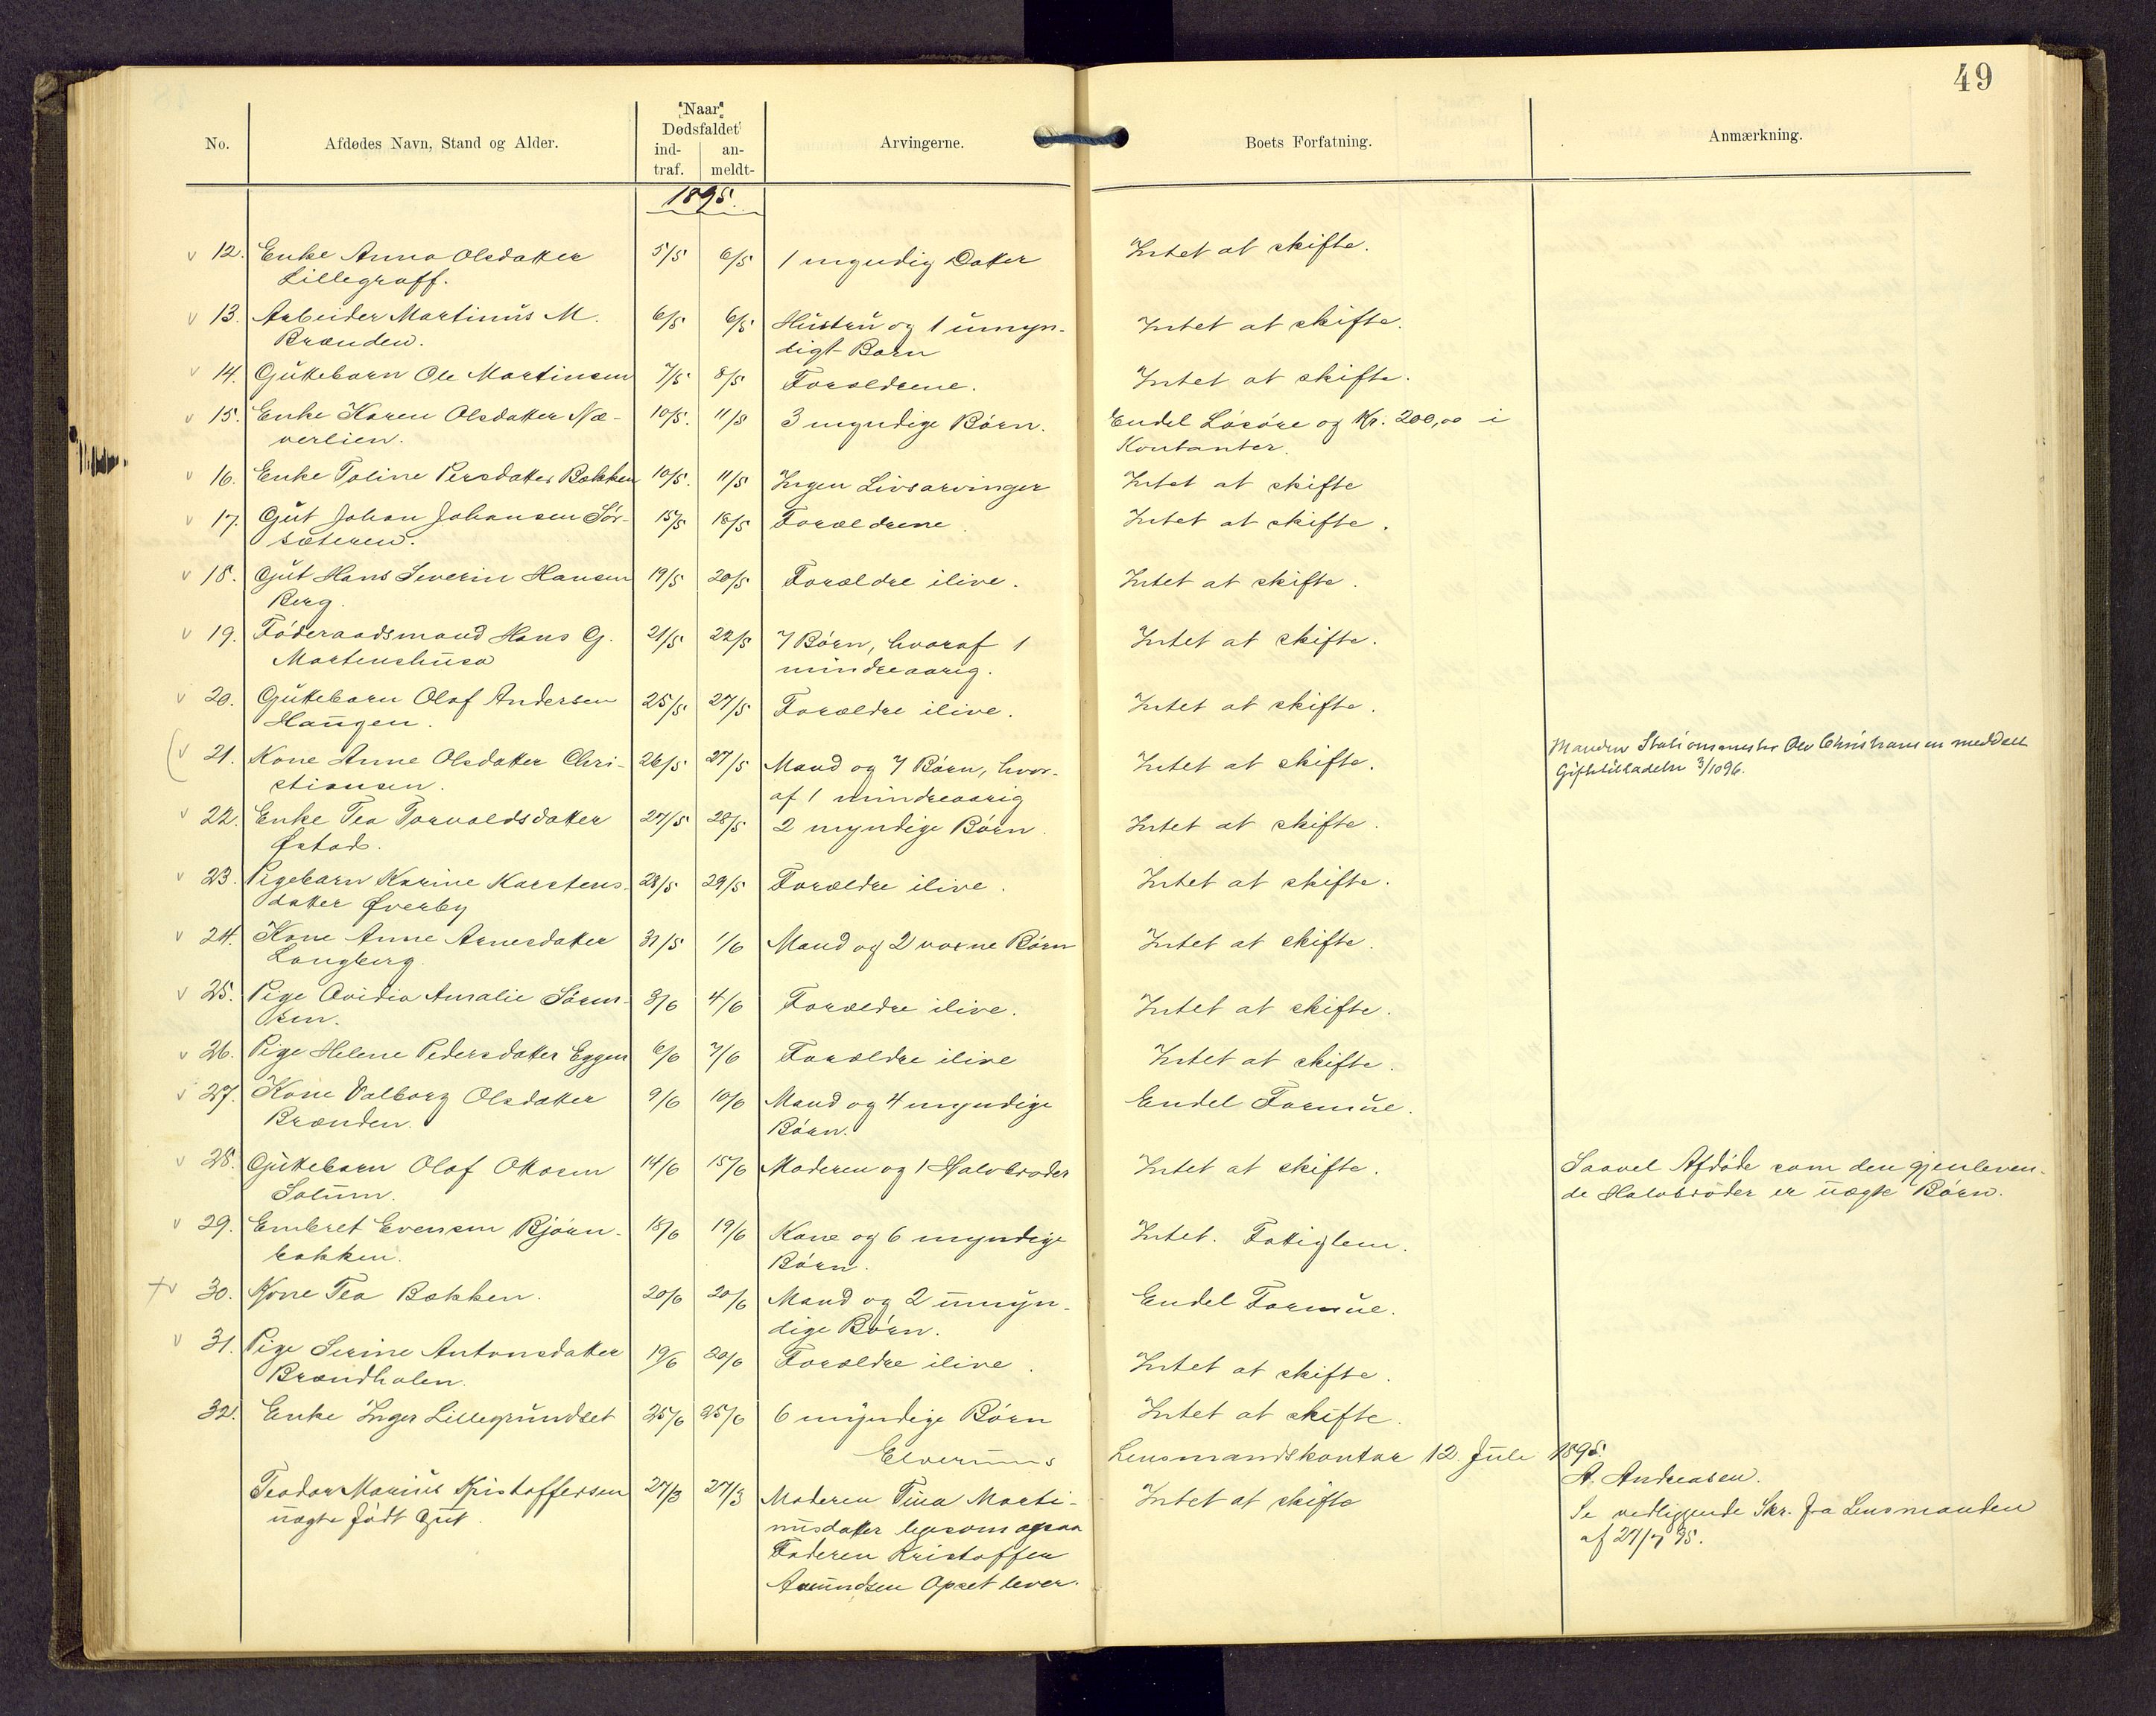 49
No. Afdødes Navn, Stand og Alder. Naar Dødsfaldet ind-traf. an-meldt- Arvingerne. Boets Forfatning. Anmærkning.
1895.
12. Enke Anna Olsdatter 5/5 6/5 1 myndig Datter Intet at skifte.
Lillegraff.
13. Arbeider Martinus M. 6/5 6/5 Hustru og 1 umyn- Intet at skifte.
Brænden. digt Barn
14. Guttebarn Ole Martinsen 7/5 8/5 Forældrene. Intet at skifte.
15. Enke Karen Olsdatter Næ- 10/5. 11/5 3 myndige Börn. Endel Lösöre og Kr. 200,00 i
verlien. Kontanter.
16. Enke Toline Persdatter Bakken 10/5. 11/5 Ingen Livsarvinger Intet at skifte
17. Gut Johan Johansen Sör- 15/5 18/5 Forældrene. Intet at skifte.
sæteren.
18. Gut Hans Severin Hansen 19/5 20/5 Forældre ilive. Intet at skifte.
Berg.
19. Föderaadsmand Hans G. 21/5 22/5 7 Börn, hvoraf 1 Intet at skifte.
Martenshusa mindreaarig.
20. Guttebarn Olaf Andersen 25/5 27/5 Forældre ilive. Intet at skifte.
Haugen.
21. Kone Anne Olsdatter Chri- 26/5 27/5 Mand og 7 Börn, hvor- Intet at skifte. Manden Stationsmester Ole Christiansen meddelt
stiansen. af 1 mindreaarig Giftetilladelse 3/10 96.
22. Enke Tea Torvaldsdatter 27/5 28/5 2 myndige Börn. Intet at skifte.
Østad.
23. Pigebarn Karine Karstens- 28/5 29/5 Forældre ilive. Intet at skifte.
datter Øverby
24. Kone Anne Arnesdatter 31/5 1/6 Mand og 2 voxne Börn Intet at skifte.
Langberg.
25. Pige Ovidia Amalie Sören- 3/6 4/6 Forældre ilive. Intet at skifte.
sen.
26. Pige Helene Pedersdatter Eggen 6/6 7/6 Forældre ilive Intet at skifte.
27. Kone Valborg Olsdatter 9/6 10/6 Mand og 4 myndige Endel Formue.
Brænden. Börn.
28. Guttebarn Olaf Ottosen 14/6 15/6 Moderen og 1 Halvbroder Intet at skifte. Saavel Afdöde som den gjenleven-
Solum. de Halvbroder er uægte Börn.
29. Embret Evensen Björn- 18/6 19/6 Kone og 6 myndige Intet. Fattiglem.
bakken. Börn.
30. Kone Tea Bakken. 20/6 20/6 Mand og 2 umyn- Endel Formue.
dige Börn.
31. Pige Serine Antonsdatter 19/6 20/6 Forældre ilive. Intet at skifte.
Brændholen.
32. Enke Inger Lillegrundset 25/6 25/6 6 myndige Börn Intet at skifte.
Elverums Lensmandskontor 12 Jule 1895.
A. Andreasen.
Teodor Marius Kristoffersen 27/3 27/3 Moderen Tina Marti- Intet at skifte Se vedliggende Skr. fra Lensmanden
uægte födt gut. nusdatter ligesom ogsaa af 27/7 95.
Faderen Kristoffer
Amundsen Opset lever.